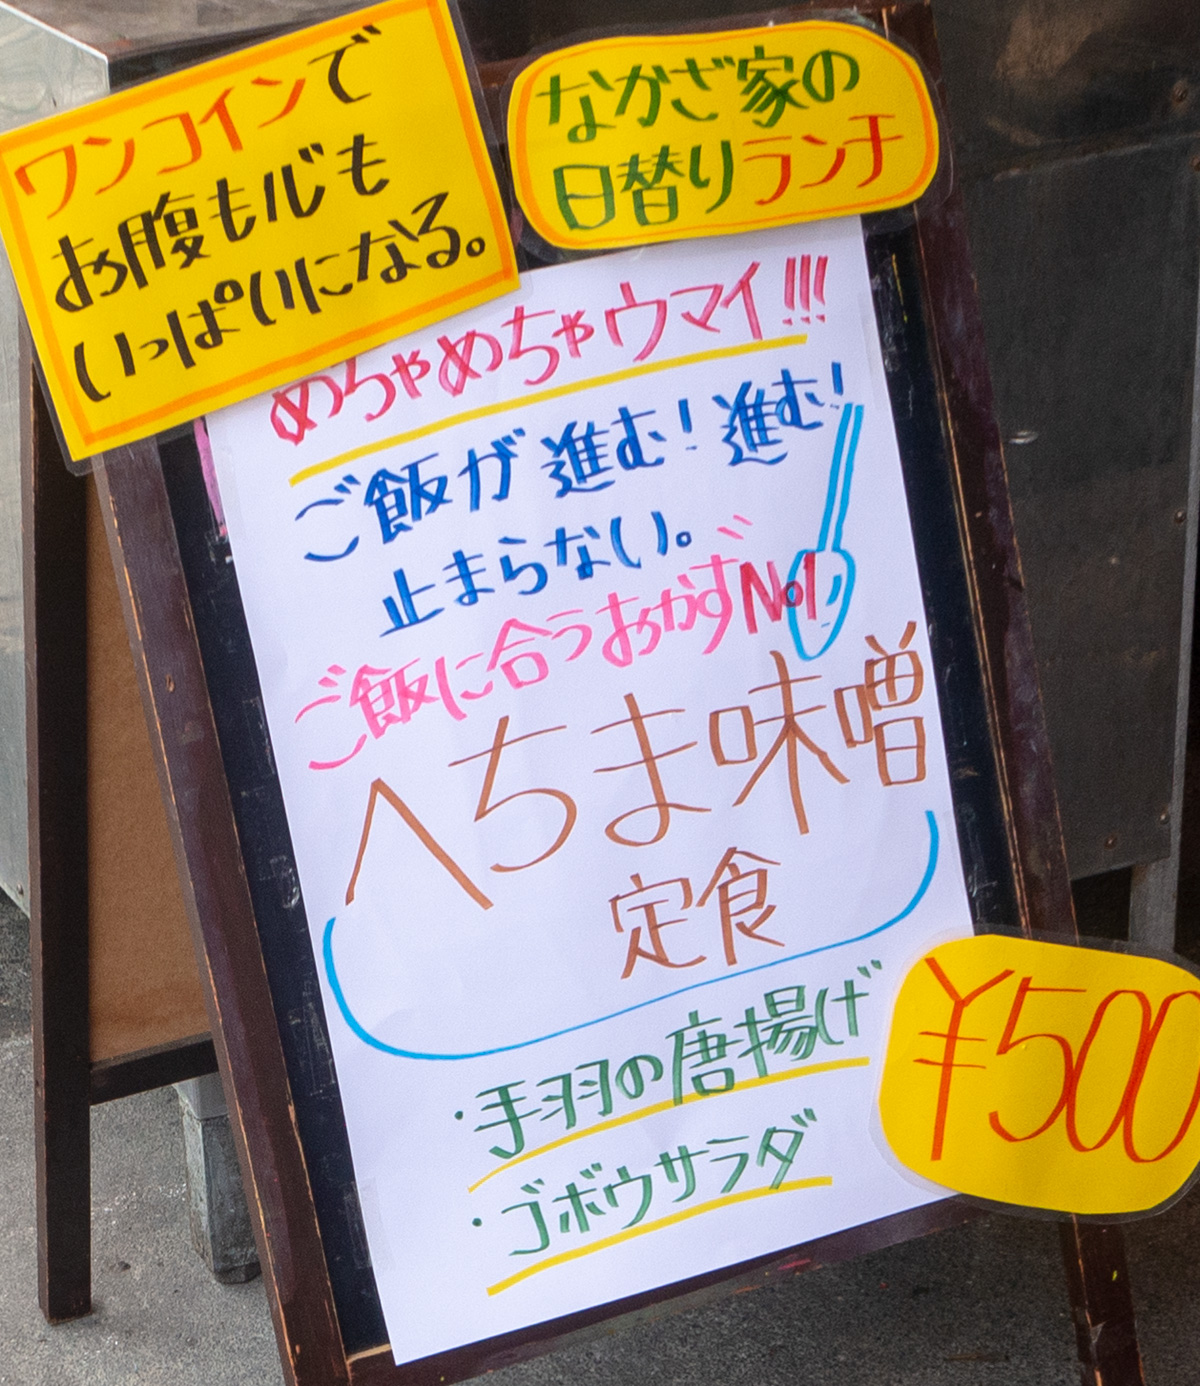 ワンコインで
お腹も心も
いっぱいになる。
なかざ家の
日替りランチ
めちゃめちゃウマイ!!!
ご飯が進む!進む!
止まらない。
ご飯に合うおかずNo1
へちま味噌
定食
・手羽の唐揚げ
・ゴボウサラダ
¥500